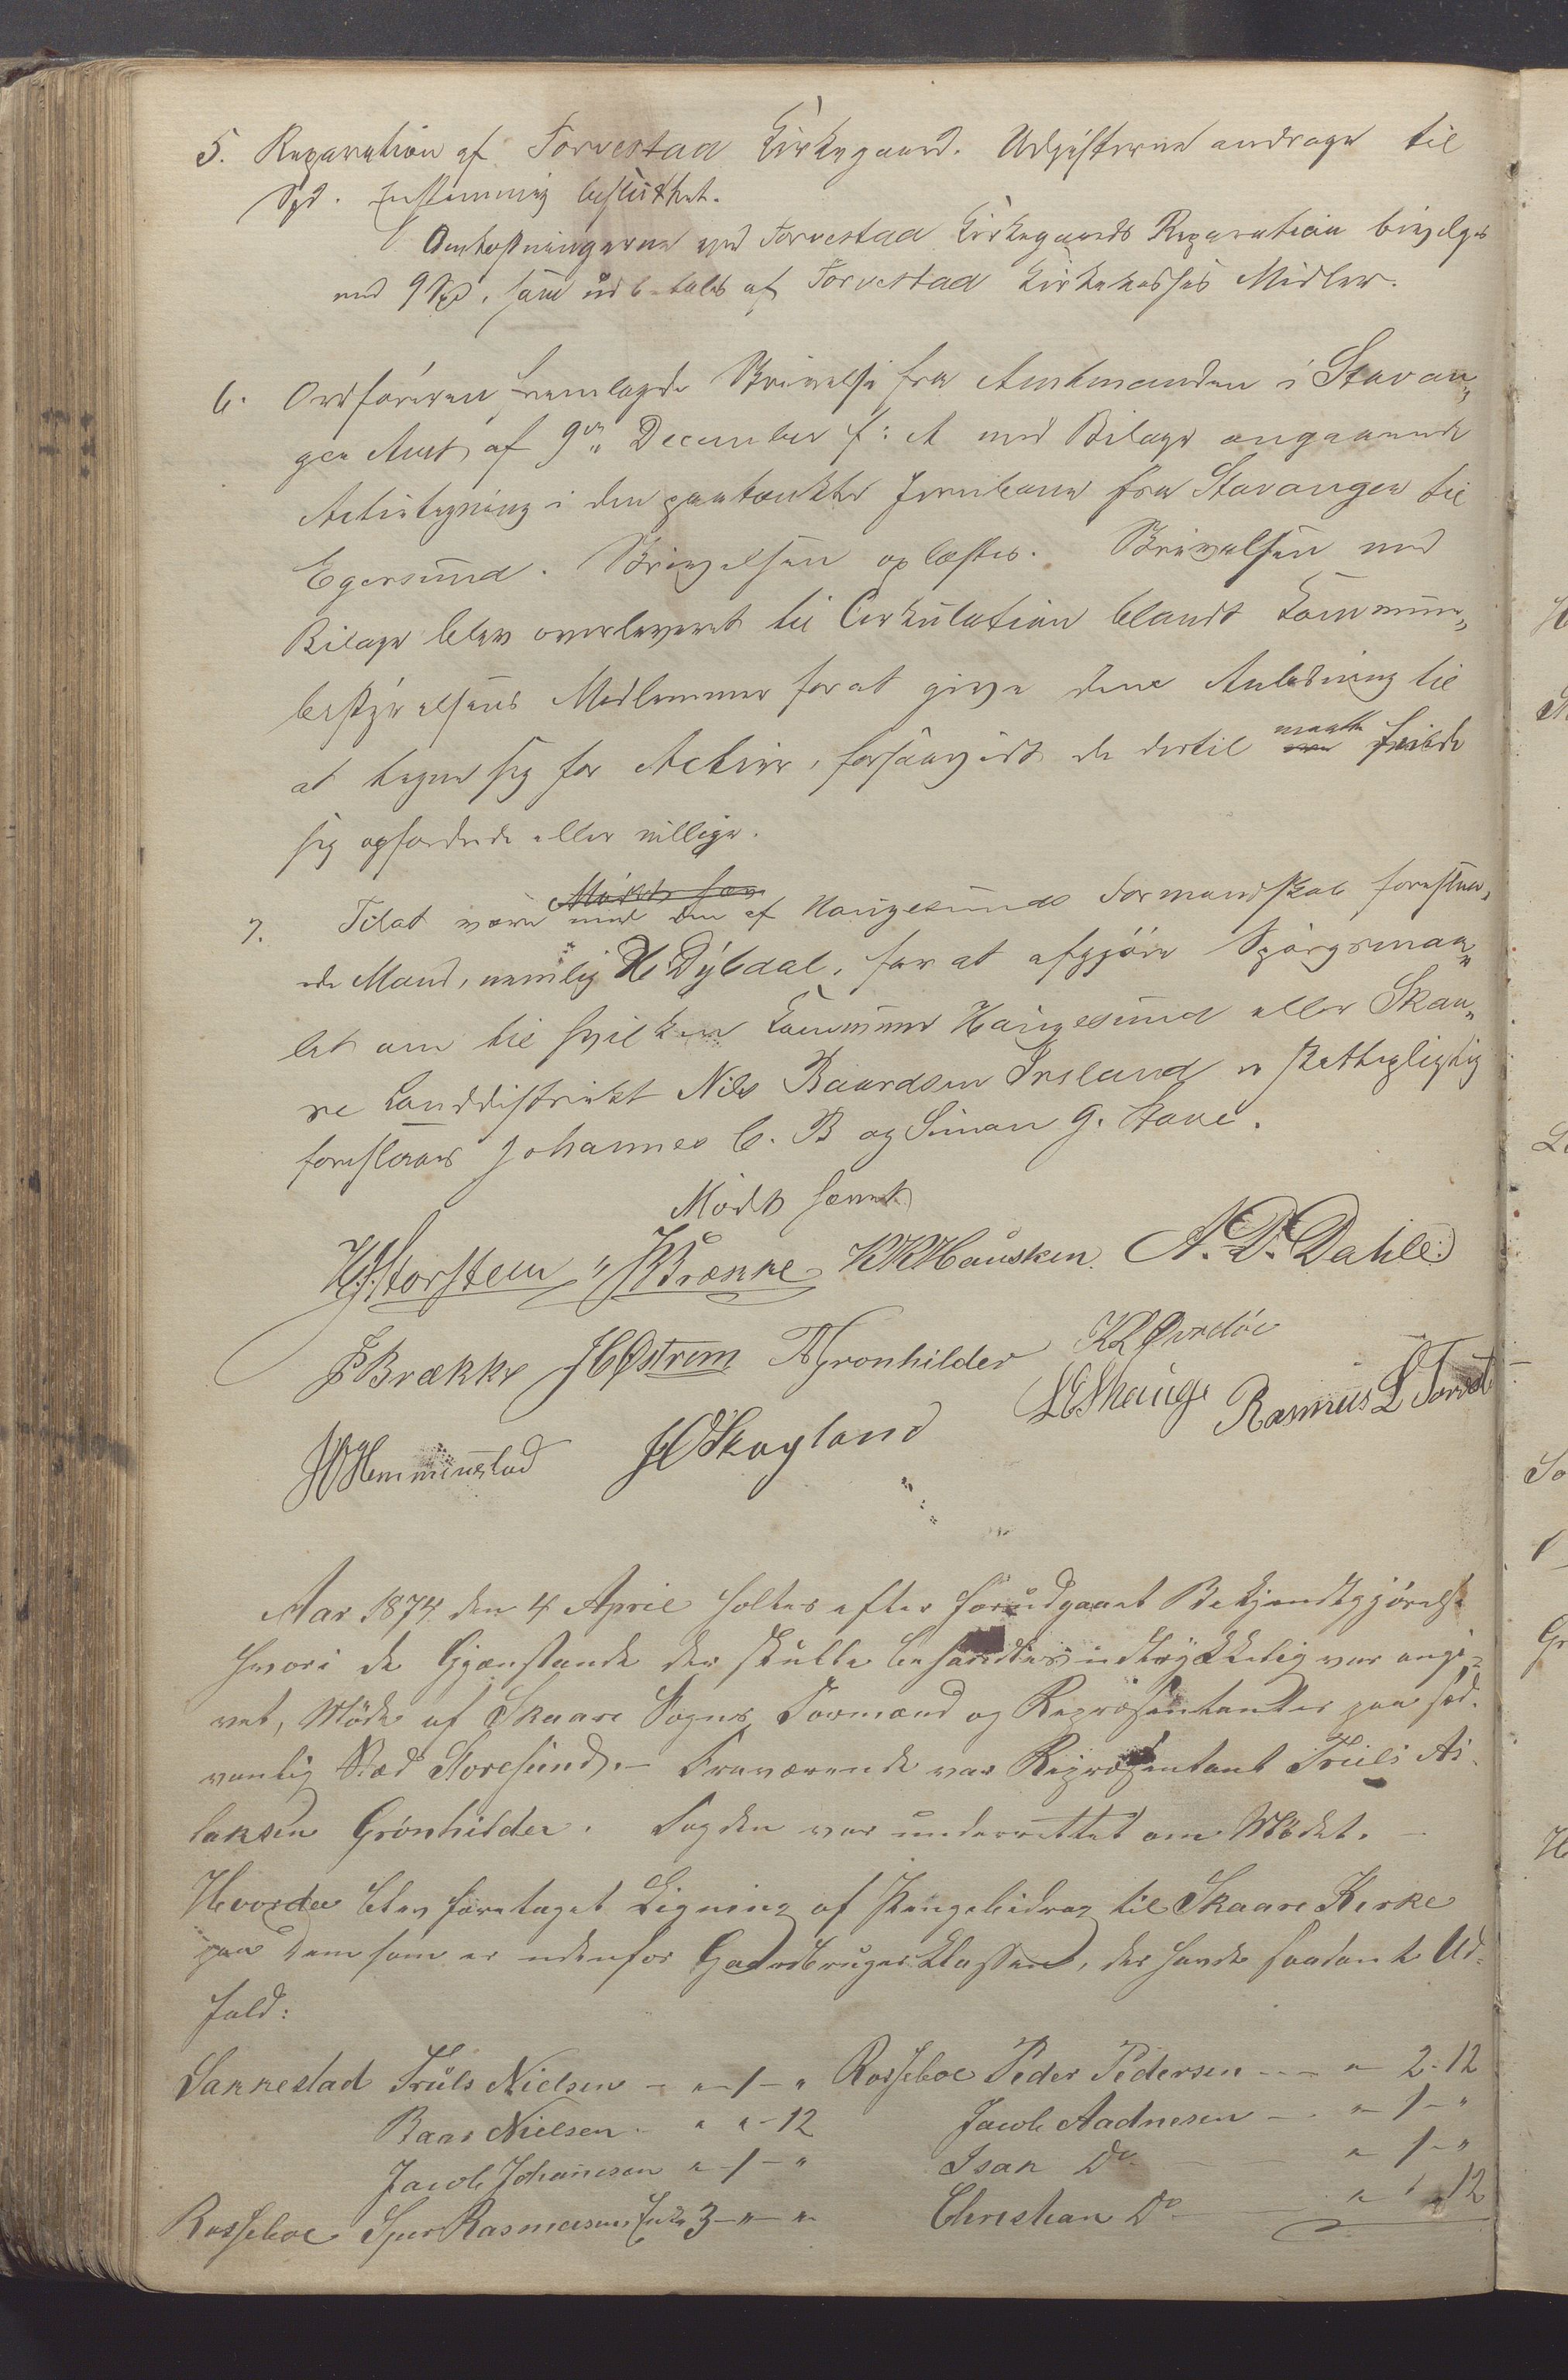 5. Reparation af Torvestad Kirkegaard. Udgifterne androge til
Spd. Enstemmig besluttet.
Omkostningerne ved Torvestad Kirkegaards Reparation bevilges
med 9 Spd, som udbetales af Torvestad Kirkekasses Midler.
6. Ordføreren fremlagde Skrivelse fra Amtmanden i Stavan„
ger Amt af 9de December f: A med Bilage angaaende
Actietegning i den paatænkte Jernbane fra Stavanger til
Egersund. Skrivelsen oplæstes. Skrivelsen med
Bilage blev overleveret til Cirkulation blandt Kommune„
bestyrelsens Medlemmer for at give dem Anledning til
at tegne sig for Actier, forsaavidt de dertil maatte finde
sig opfordrede eller villige.
7. Til at være Mødt som med den af Haugesunds Formandskab foreslaa„
ede Mand, nemlig H Dybdal, for at afgjøre Spørgsmaa„
let om til hvilken Kommune Haugesund eller Skaa„
re Landdistrikt Nils Baardsen Irsland er skattepligtig
foreslaaes Johannes C. B og Simon G. Stave.
Mødet hævet
H. Storsteen J Brække KKHausken. A. D. Dahle
P Brække JCØstrem TAGronhilder KLQvedøe
LEShauge Rasmus L Torvest
JOHemmingstad JOSkogland
Aar 1874 den 4 April holtes efter forudgaaet Bekjendtgjørelse
hvori de Gjenstande der skulle behandles udtrykkelig var angi-
vet, Møde af Skaare Sogns Formænd og Repræsentanter paa sæd-
vanlig Sted Storesund. – Fraværende var Repræsentant Truls As-
laksen Grønhilder. Fogden var underrettet om Mødet. –
Hvorda blev foretaget Ligning af Pengebidrag til Skaare Kirke
paa dem som er udenfor Gaardbruger Klassen, der havde saadant Ud-
fald:
Sakkestad Truls Nielsen – „ – 1 – „ Rosseboe Peder Pedersen – – – „ 2 – 12
Baar Nielsen – „ „ – 12 Jacob Aadnesen – „ – 1 – „
Jacob Johanesen „ – 1 – „ Isak Do „ 1 – „
Rosseboe Sjur Rasmussens Enke 3 – „ – „ Christian Do „ „ 12